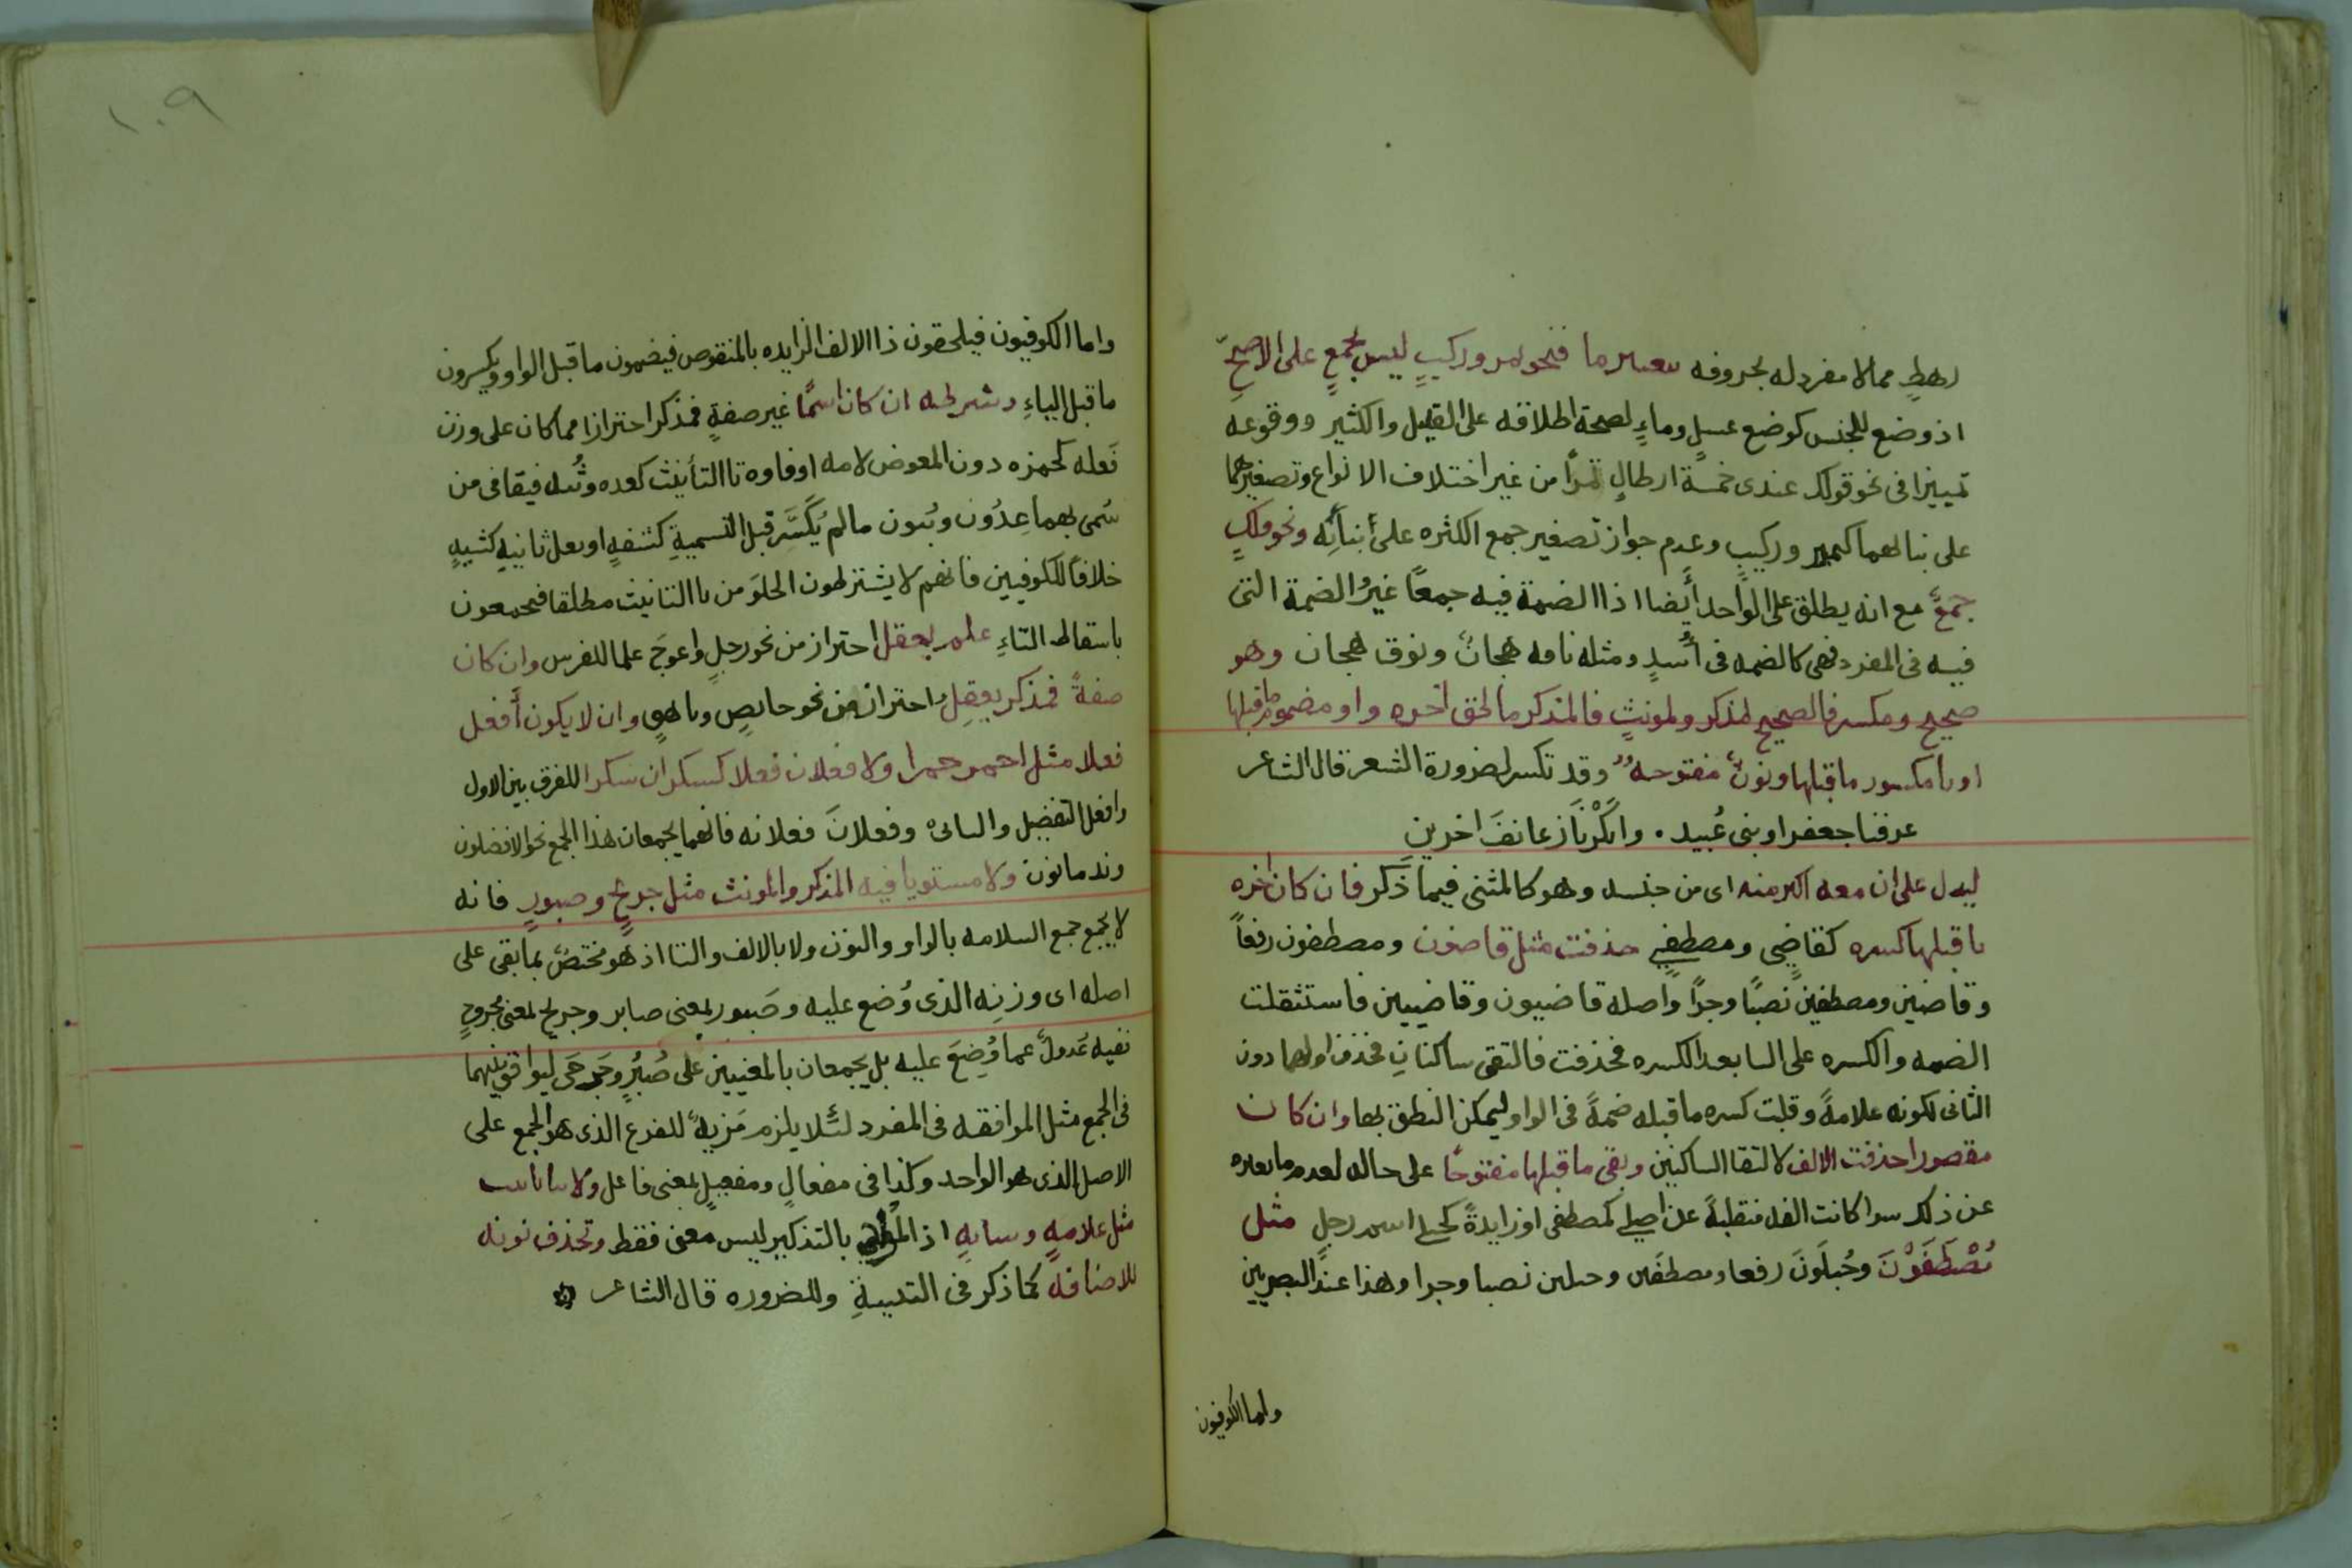 رهطٍ مما لا مفرد له بحروفه بتغيير ما فنحو تمر وركبٍ ليس بجمعٍ على الاصحّ
اذ وضع للجنس كوضع عسلٍ وماءٍ لصحة اطلاقه على القليل والكثير ووقوعه
تمييزا فى نحو قولك عندى خمسة ارطالٍ تمراً من غير اختلاف الانواع وتصغيرهما
على بنائهما كتمير وركيب وعدم جواز تصغير جمع الكثره على أبنائِه ونحو فلكٍ
جمعٌ مع انه يطلق على الواحد أيضا اذ الضمة فيه جمعًا غيرُ الضمة التى
فيه فى المفرد فهى كالضمه فى أُسدٍ ومثله ناقه هجانٌ ونوق هجان وهو
صحيح ومكسر فالصحيح لمذكر ولمونثٍ فالمذكر ما لحق آخره واو مضموم ما قبلها
او يا مكسور ما قبلها ونونٌ مفتوحهٌ وقد تكسر لضرورة الشعر قال الشاعر
عرفنا جعفرا وبنى عُبيد . وانكرْنا زعانفَ اخرين
ليدل على ان معه اكثر منه اى من جنسه وهو كالمثنى فيما ذَكر فان كان اخره
يا قبلها كسره كقاضٍى ومصطفٍى حذفت مثل قاضون ومصطفون رفعاً
وقاضين ومصطفين نصبًا وجرًا واصله قاضيون وقاضيين فاستثقلت
الضمه والكسره على اليا بعد الكسره فحذفت فالتقى ساكنانِ فحذف اولهما دون
الثانى لكونه علامةً وقلبت كسره ما قبله ضمةً فى الواو ليمكن النطق بها وان كان
مقصورا حذفت الالف لالتقا الساكنين وبقى ما قبلها مفتوحًا على حاله لعدم ما يغيره
عن ذلك سوا كانت الفه منقلبةً عن اصلى كمصطفى او زايدةً كحبلى اسم رجل مثل
مُصْطَفَوْنَ وحُبلَونَ رفعا ومصطفَين وحبلين نصبا وجرا وهذا عند البصريين
واما الكوفيون
١٠٩
واما الكوفيون فيلحقون ذا الالف الزايده بالمنقوص فيضمون ما قبل الواو ويكسرون
ما قبل الياءِ وشرطه ان كان اسمًا غير صفةٍ فمذكر احترازا مما كان على وزن
فَعله كحمزه دون المعوض لامه او فاوه تا التأنيث كعده وثُبه فيقا فى من
سُمى بهما عِدُون وثُبون ما لم يُكَسَّر قبل التسميةِ كشفهٍ او يعل ثانيهِ كشيهٍ
خلافاً للكوفيين فانهم لا يشترطون الخلوَ من تا التانيث مطلقا فيجمعون
باسقاط التاءِ علم يعقل احتراز من نحو رجلٍ واعوجَ علما للفرس وان كان
صفةً فمذكر يعقِل احتراز من نحو حايضٍ وناهقٍ وان لا يكون أفعل
فعلا مثل احمر حمرا ولا فعلان فعلا كسكران سكرا للفرق بين الاول
وافعل التفضيل والثانى وفعلانَ فعلانه فانهما يجمعان هذا الجمع نحو الافضلون
وندمانون ولا مستويا فيه المذكر والمونث مثل جريحٍ وصبورٍ فانه
لا يجمع جمع السلامه بالواو والنون ولا بالالف والتا اذ هو مختصٌ بما بقى على
اصله اى وزنِه الذى وُضع عليه وصَبور بمعنى صابر وجريح بمعنى مجروحٍ
نفيه عَدولٌ عما وُضِعَ عليه بل يجمعان بالمعنيين على صُبُرٍ وجَرحَى ليوافق بينهما
فى الجمع مثل الموافقه فى المفرد لئلا يلزم مَزيهٌ للفرع الذى هو الجمع على
الاصل الذى هو الواحد وكذا فى مفعالٍ ومفعيلٍ بمعنى فاعل ولا بتا تانيث
مثل علامهٍ ونسابهٍ اذ بالتذكير ليس معنى فقط وتحذف نونه
للاضافه كما ذكر فى التثنيةِ وللضروره قال الشاعر